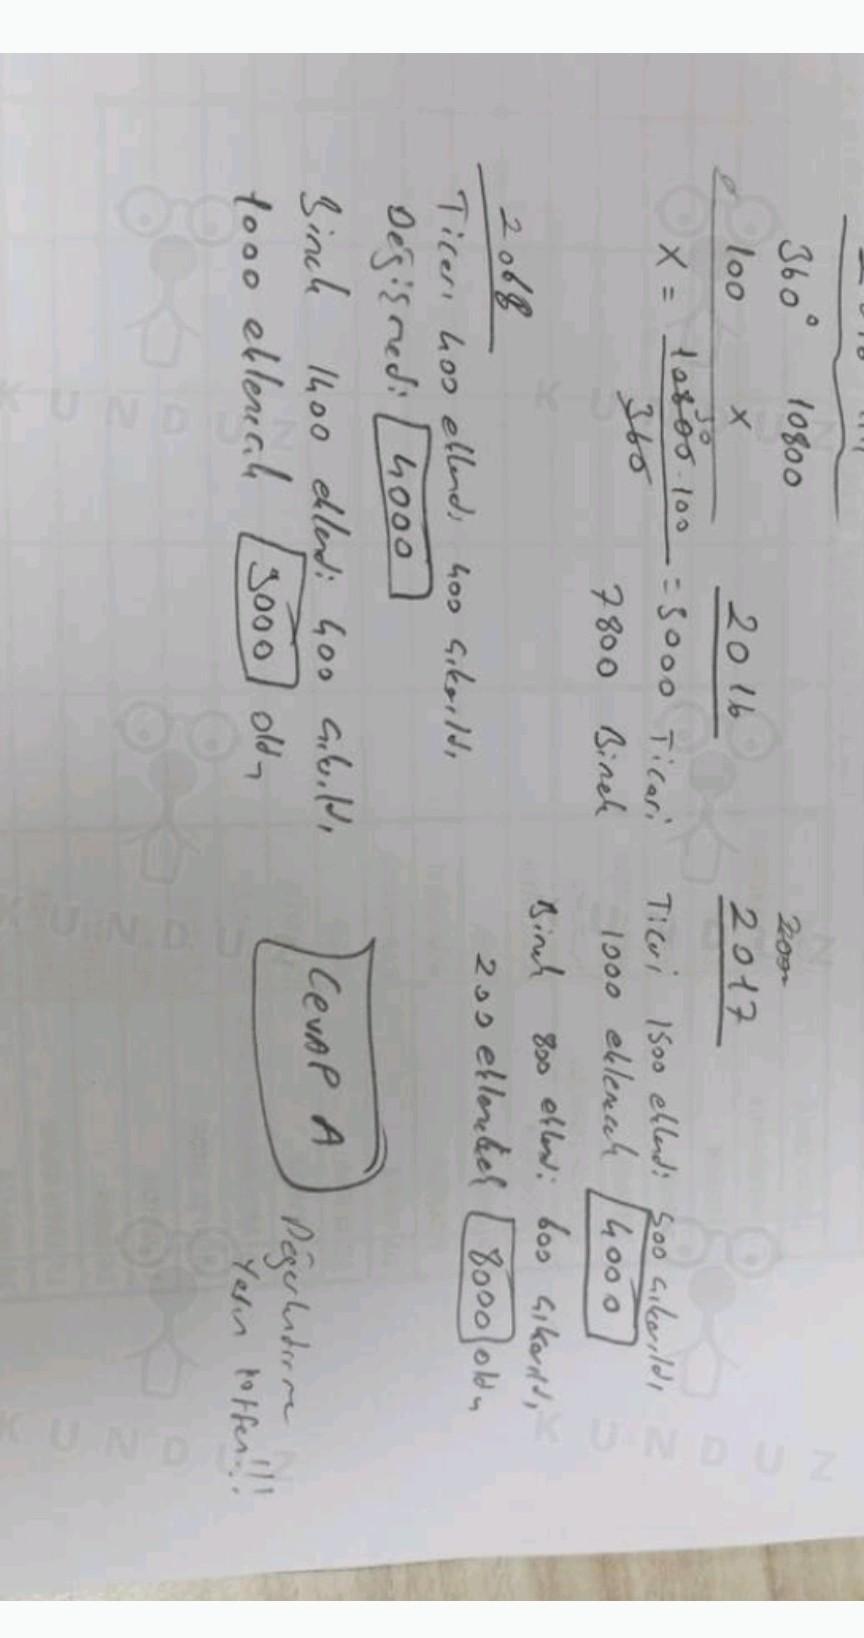 360° 10800
100 x
x = 10800.100 / 360 = 3000 Ticari
30
2016
7800 Binek
2000
2017
Ticari 1500 eklendi 500 çıkarıldı
1000 eklenecek 4000
Binek 800 eklendi 600 çıkarıldı
200 eklenecek 8000 oldu
2018
Ticari 400 eklendi 400 çıkarıldı
Değişmedi 4000
Binek 1400 eklendi 400 çıkarıldı
1000 eklenecek 9000 oldu
CEVAP A
Değerlendirme
Yapın lütfen!!!
KUNDUZ
KUNDUZ
KUNDUZ
KUNDUZ
KUNDUZ
KUNDUZ